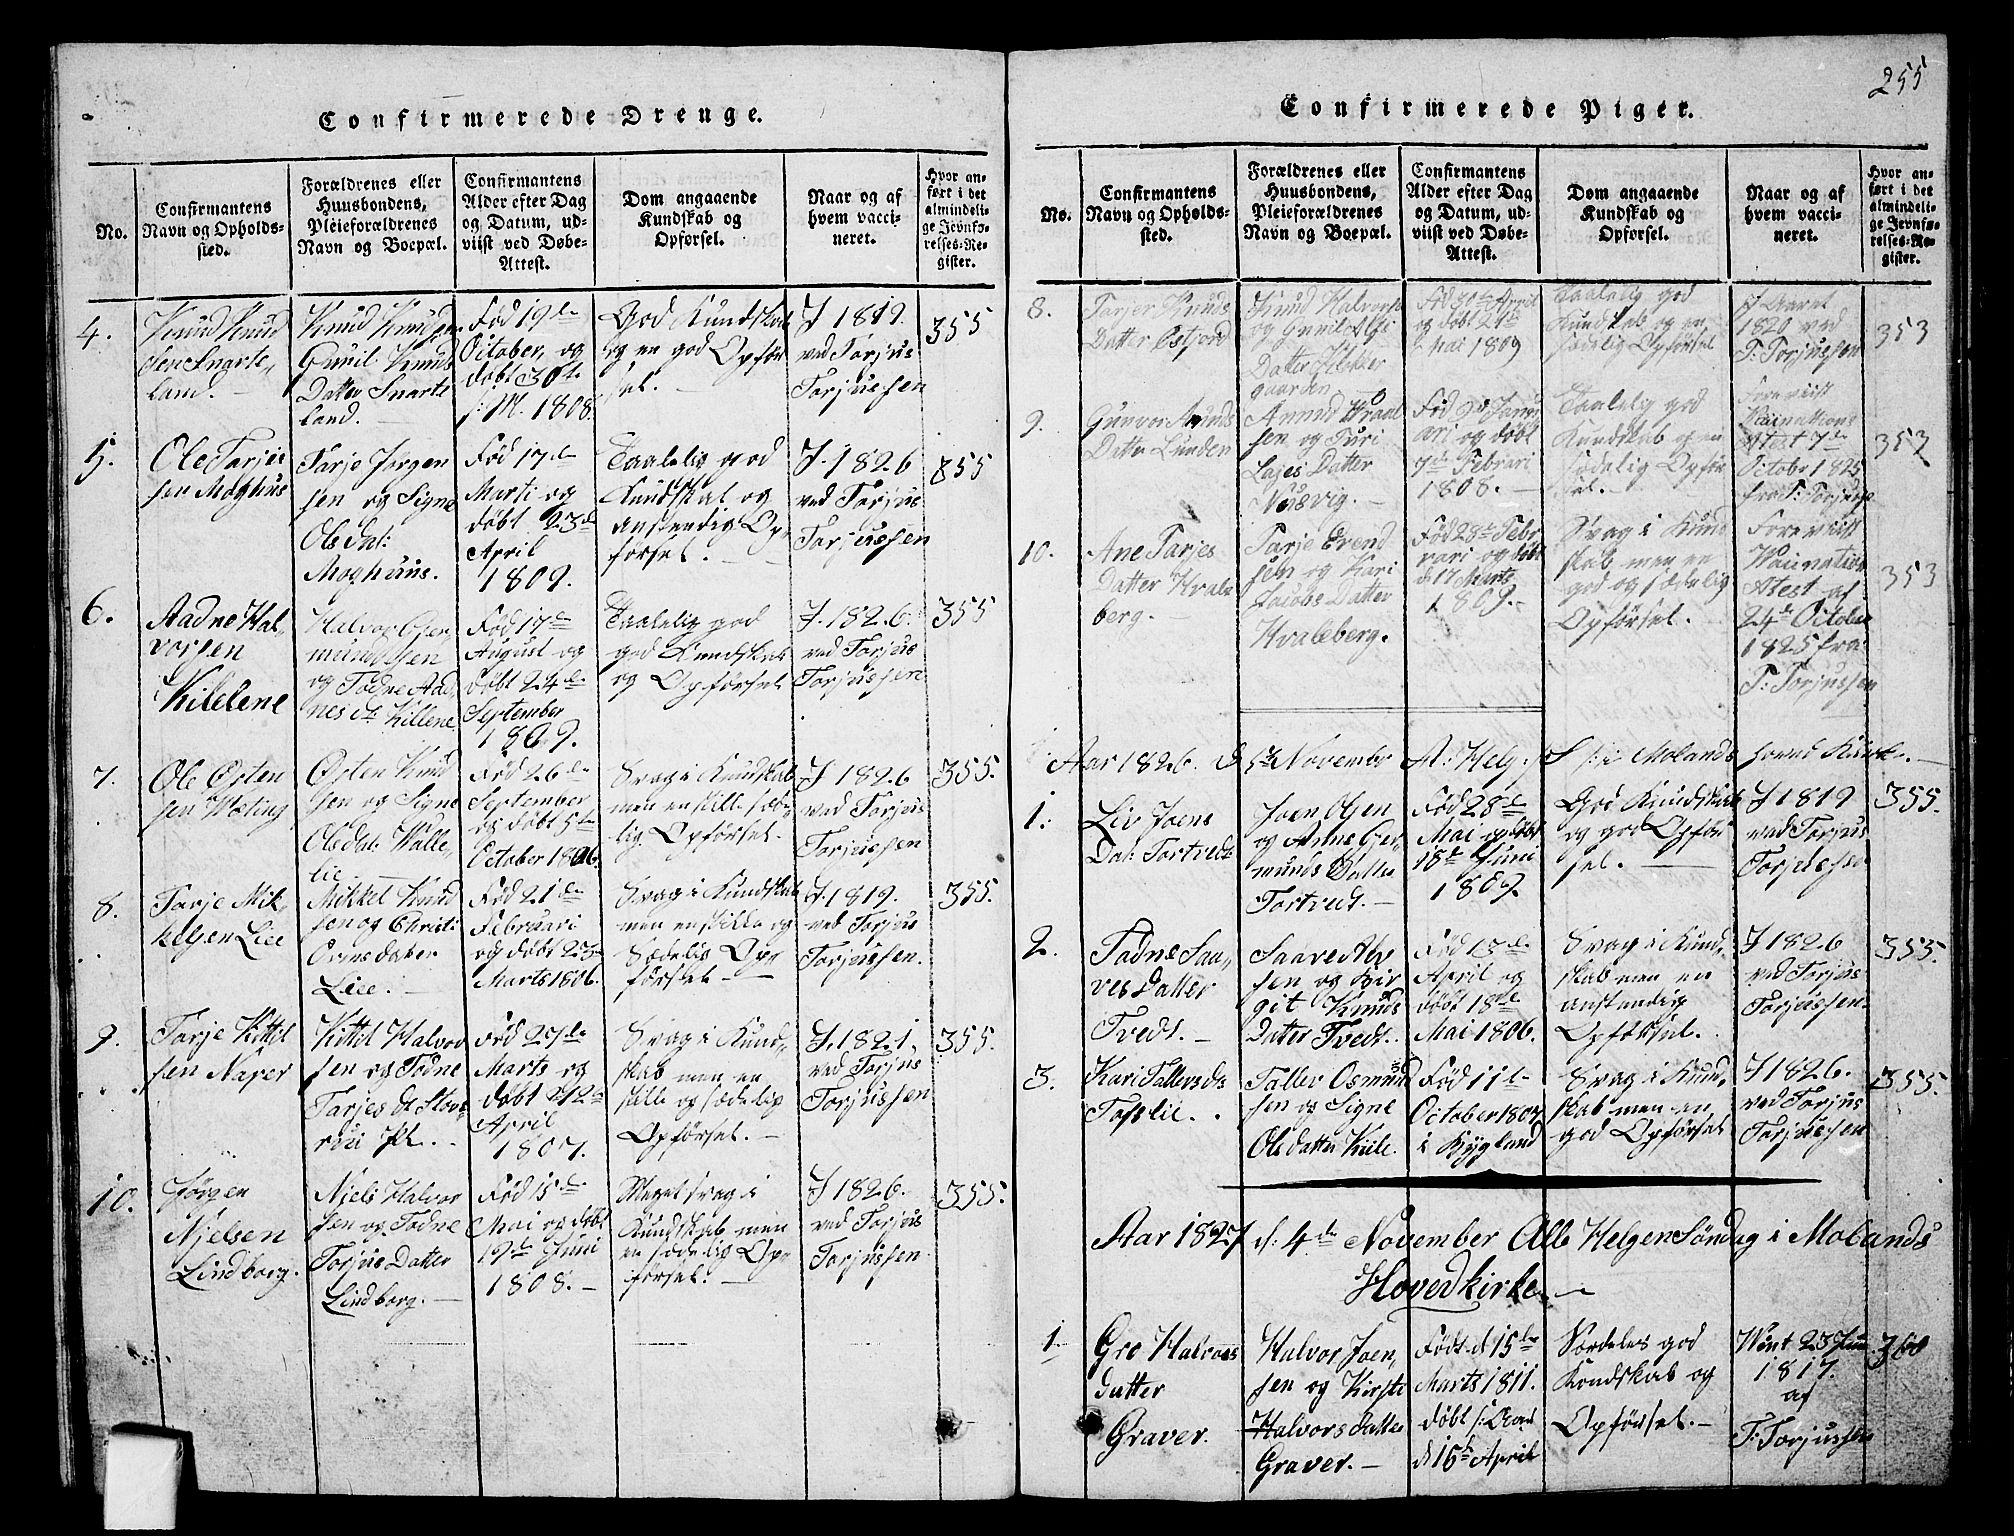 255
Confirmerede Drenge.
No.
Confirmantens
Navn og Opholds-
sted.
Forældrenes eller
Huusbondens,
Pleieforældrenes
Navn og Boepæl.
Confirmantens
Alder efter Dag
og Datum, ud-
viist ved Døbe-
Attest.
Dom angaaende
Kundskab og
Opførsel.
Naar og af
hvem vacci-
neret.
Hvor an-
ført i det
almindeli-
ge Jevnfø-
relses-Re-
gister.
4.
Knud Knud
sen Snarte
land.
Knud Knudsen
Gunil Knuds
Datter Snarte
land.
Fød 19de
October, og
døbt 30te
s: M. 1808.
God Kundskab
og en god Opfør
sel.
I 1819.
ved Torjus
Torjussen
355
5.
Ole Tarje
sen Moghus
Tarje Jørgen
sen og Signe
Ols Dat:
Moghuus.
Fød 17de
Marti og
døbt 23de
April
1809.
Taalelig god
Kundskab og
anstendig Op-
førsel.
I. 1826
ved Torjus
Torjussen
855
6.
Aadne Hal-
vorsen
Kilelene
Halvor Gjer
mundsen
og Todne Aad
nes d. Killene
Fød 17de
August og
døbt 24de
September
1809.
Taalelig god
god Kundskab
og Opførsel
I. 1826.
ved Torjus
Torjussen
355
7.
Ole Østen
sen Wæting
Østen Knud
sen og Signe
Olsdat: Walle-
lie.
Fød 26de
September
og døbt 5te
October 1806.
Svag i Kundskab
men en stille sæde-
lig Opførsel.
I 1826
ved Torjus
Torjussen
355.
8.
Tarje Mik-
kelsen Liee
Mikkel Knud
sen og Christi
Ormsdater
Liee.
Fød 21de
Februari
og døbt 23
Marts 1806.
Svag i Kundskab
men en stille og
Sædelig Op-
førsel
I. 1819.
ved Torjus
Torjussen.
355.
9.
Tarje Kittil
sen Naper
Kittil Halvor
sen og Todne
Tarjes d.
Fød 27de
Marts og
døbt 12
April
1807.
Svag i Kund-
skab men en
stille og sædelig
Opførsel.
I. 1821.
ved Torjus
Torjussen
355.
10.
Jørgen
Nielsen
Lindborg.
Niels Halvor
sen og Todne
Torjus Datter
Lindborg.
Fød 15de
Mai og døbt
19de Juni
1808.
Meget svag i
Kundskab men
en sædelig Op-
førsel.
I 1826.
ved Torjus
Torjussen
355.
Confirmerede Piger.
No.
Confirmantens
Navn og Opholds-
sted.
Forældrenes eller
Huusbondens,
Pleieforældrenes
Navn og Boepæl.
Confirmantens
Alder efter Dag
og Datum, ud-
viist ved Døbe-
Attest.
Dom angaaende
Kundskab og
Opførsel.
Naar og af
hvem vacci-
neret.
Hvor an-
ført i det
almindeli-
ge Jevnfø-
relses-Re-
gister.
8.
Tarjer Knuds
Datter Østjord
Knud Halvors
og Gunil
Datter
gaarden
Fød 30te April
og døbt 21de
Mai 1809
Taalelig god
Kundskab og en
sædelig Opførsel
I Aaret
1820 ved
T: Torjussen
353
9.
Gunvor Anunds
Datter Lunden
Annund Knud
sen og Turi
Lages Datter
Nesvig.
Fød 9de Janu
ari og døbt
7de Februari
1808.
Taalelig god
Kundskab og en
sædelig Opfør
sel.
Foreviist
Vacinations
Attest 7de
October 1825
fra T: Torjuss
353
10.
Ane Tarjes
Datter Kvale
berg.
Tarje Erend
sen og Kari
Jacobs Datter
Kvaleberg.
Fød 28de Febr
vari og døbt
d 17 Marts
1809.
Svag i Kund
skab men en
god og sædelig
Opførsel.
Foreviist
Vacination
Atest af
24de October
1825 fra
T: Torjussen
353
Aar 1826. d. 5te November A: Helg: S: i Molands hoved Kirke.
1.
Liv Joens
Dat: Tortvedt
Joen Olsen
og Anne Gjer
munds Datter
Tortvedt.
Fød 28de
Mai og døbt
18de Juni
1809.
God Kundskab
og god Opfør
sel.
I 1819
ved Torjus
Torjussen
355.
2.
Todne Saa-
ves Datter
Tvedt.
Saave Alv
sen og Bir
git Knuds
Datter Tvedt.
Fød 13de
April og
døbt 18de
Mai 1806.
Svag i Kund-
skab men en
anstendig
Opførsel.
I 1826
ved Torjus
Torjussen
355.
3.
Kari Tallers D:
Tofslie.
Taller Osmund
sen og Signe
Olsdatter Kiile.
Fød 11te
October 1807
i Bygland
Svag i Kund-
skab men en
god Opførsel
I 1826.
ved Torjus
Torjussen
355.
Aar 1827 d: 4de November Alle Helgen Søndag i Molands
Hovedkirke.
1.
Gro Halvors
datter
Graver.
Halvor Joen-
sen og Kirste
Halvorsdatter
Graver.
Født d 15de
Marts 1811.
døbt
d 16de April
Særdeles god
Kondskab og
Opførsel.
23 Juni
1817.
af
T: Torjussen
360